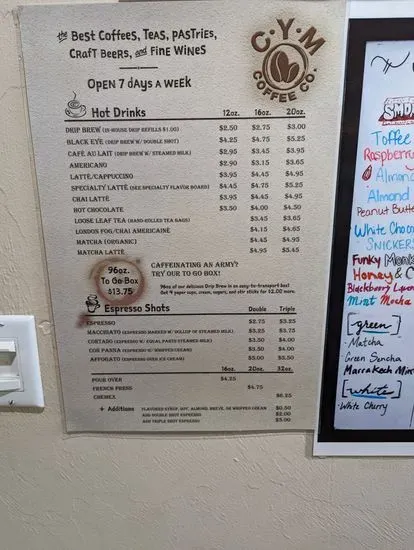 the Best Coffees, Teas, Pastries,
Craft Beers, and Fine Wines
Open 7 days a week
C·Y·M
COFFEE CO.
Hot Drinks 12oz. 16oz. 20oz.
Drip Brew (in-house drip refills $1.00) $2.50 $2.75 $3.00
Black Eye (drip brew w/ double shot) $4.25 $4.75 $5.25
Café au Lait (drip brew w/ steamed milk) $2.95 $3.45 $3.95
Americano $2.90 $3.15 $3.65
Latte/Cappuccino $3.95 $4.45 $4.95
Specialty Latté (see specialty flavor board) $4.45 $4.75 $5.25
Chai Latté $3.95 $4.45 $4.95
Hot Chocolate $3.50 $4.00 $4.50
Loose Leaf Tea (hand-rolled tea bags) $3.45 $3.65
London Fog/Chai Americaine $4.15 $4.65
Matcha (organic) $4.45 $4.95
Matcha Latté $5.45
96oz.
To Go Box
$13.75
Caffeinating an Army?
Try our To Go Box!
96oz of our delicious Drip Brew in an easy-to-transport box!
Get 9 paper cups, cream, sugars, and stir sticks for $2.00 more.
Espresso Shots Double Triple
Espresso $2.75 $3.25
Macchiato (espresso marked w/ dollop of steamed milk) $3.25 $3.75
Cortado (espresso w/ equal parts steamed milk) $3.50 $4.00
Con Panna (espresso w/ whipped cream) $3.50 $4.00
Affogato (espresso over ice cream) $5.00 $5.50
16oz. 20oz. 32oz.
Pour Over $4.25
French Press $4.75
Chemex $6.25
+ Additions Flavored Syrup, Oat, Almond, Breve, or Whipped Cream $0.50
Add Double Shot Espresso $2.00
Add Triple Shot Espresso $3.00
Toffee
Raspberry
Almond
Almond
Peanut Butte
White Choc
Snickers
Funky Monk
Honey & C
Blackberry
Mint Mocha
[green]
· Matcha
Green Sencha
Marrakech Min
[white]
· White Cherry